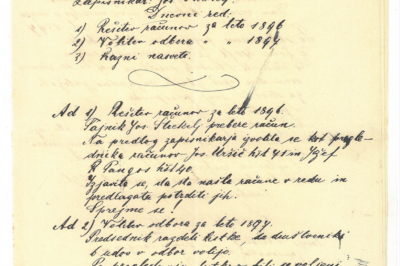 Zapisnikar: Jos.
Dnevni red:
1) Rešitev računov za leto 1896
2) Volitev odbora " " 1897
3) Razni nasveti.
Ad 1) Rešitev računov za leto 1896.
Tajnik Jos. Steckelj prebere račun.
Na predlog zapisnikarja izvolita se kot pregle-
dnika računov Jos. Uršič hšt 41 in Jožef
R. Pangos hšt 40.
Izjavita se, da sta našla račune v redu in
predlagata potrditi jih.
Sprejme se!
Ad 2) Volitev odbora za leto 1897.
Predsednik razdeli listke, da društveniki
6 udov v odbor volijo.